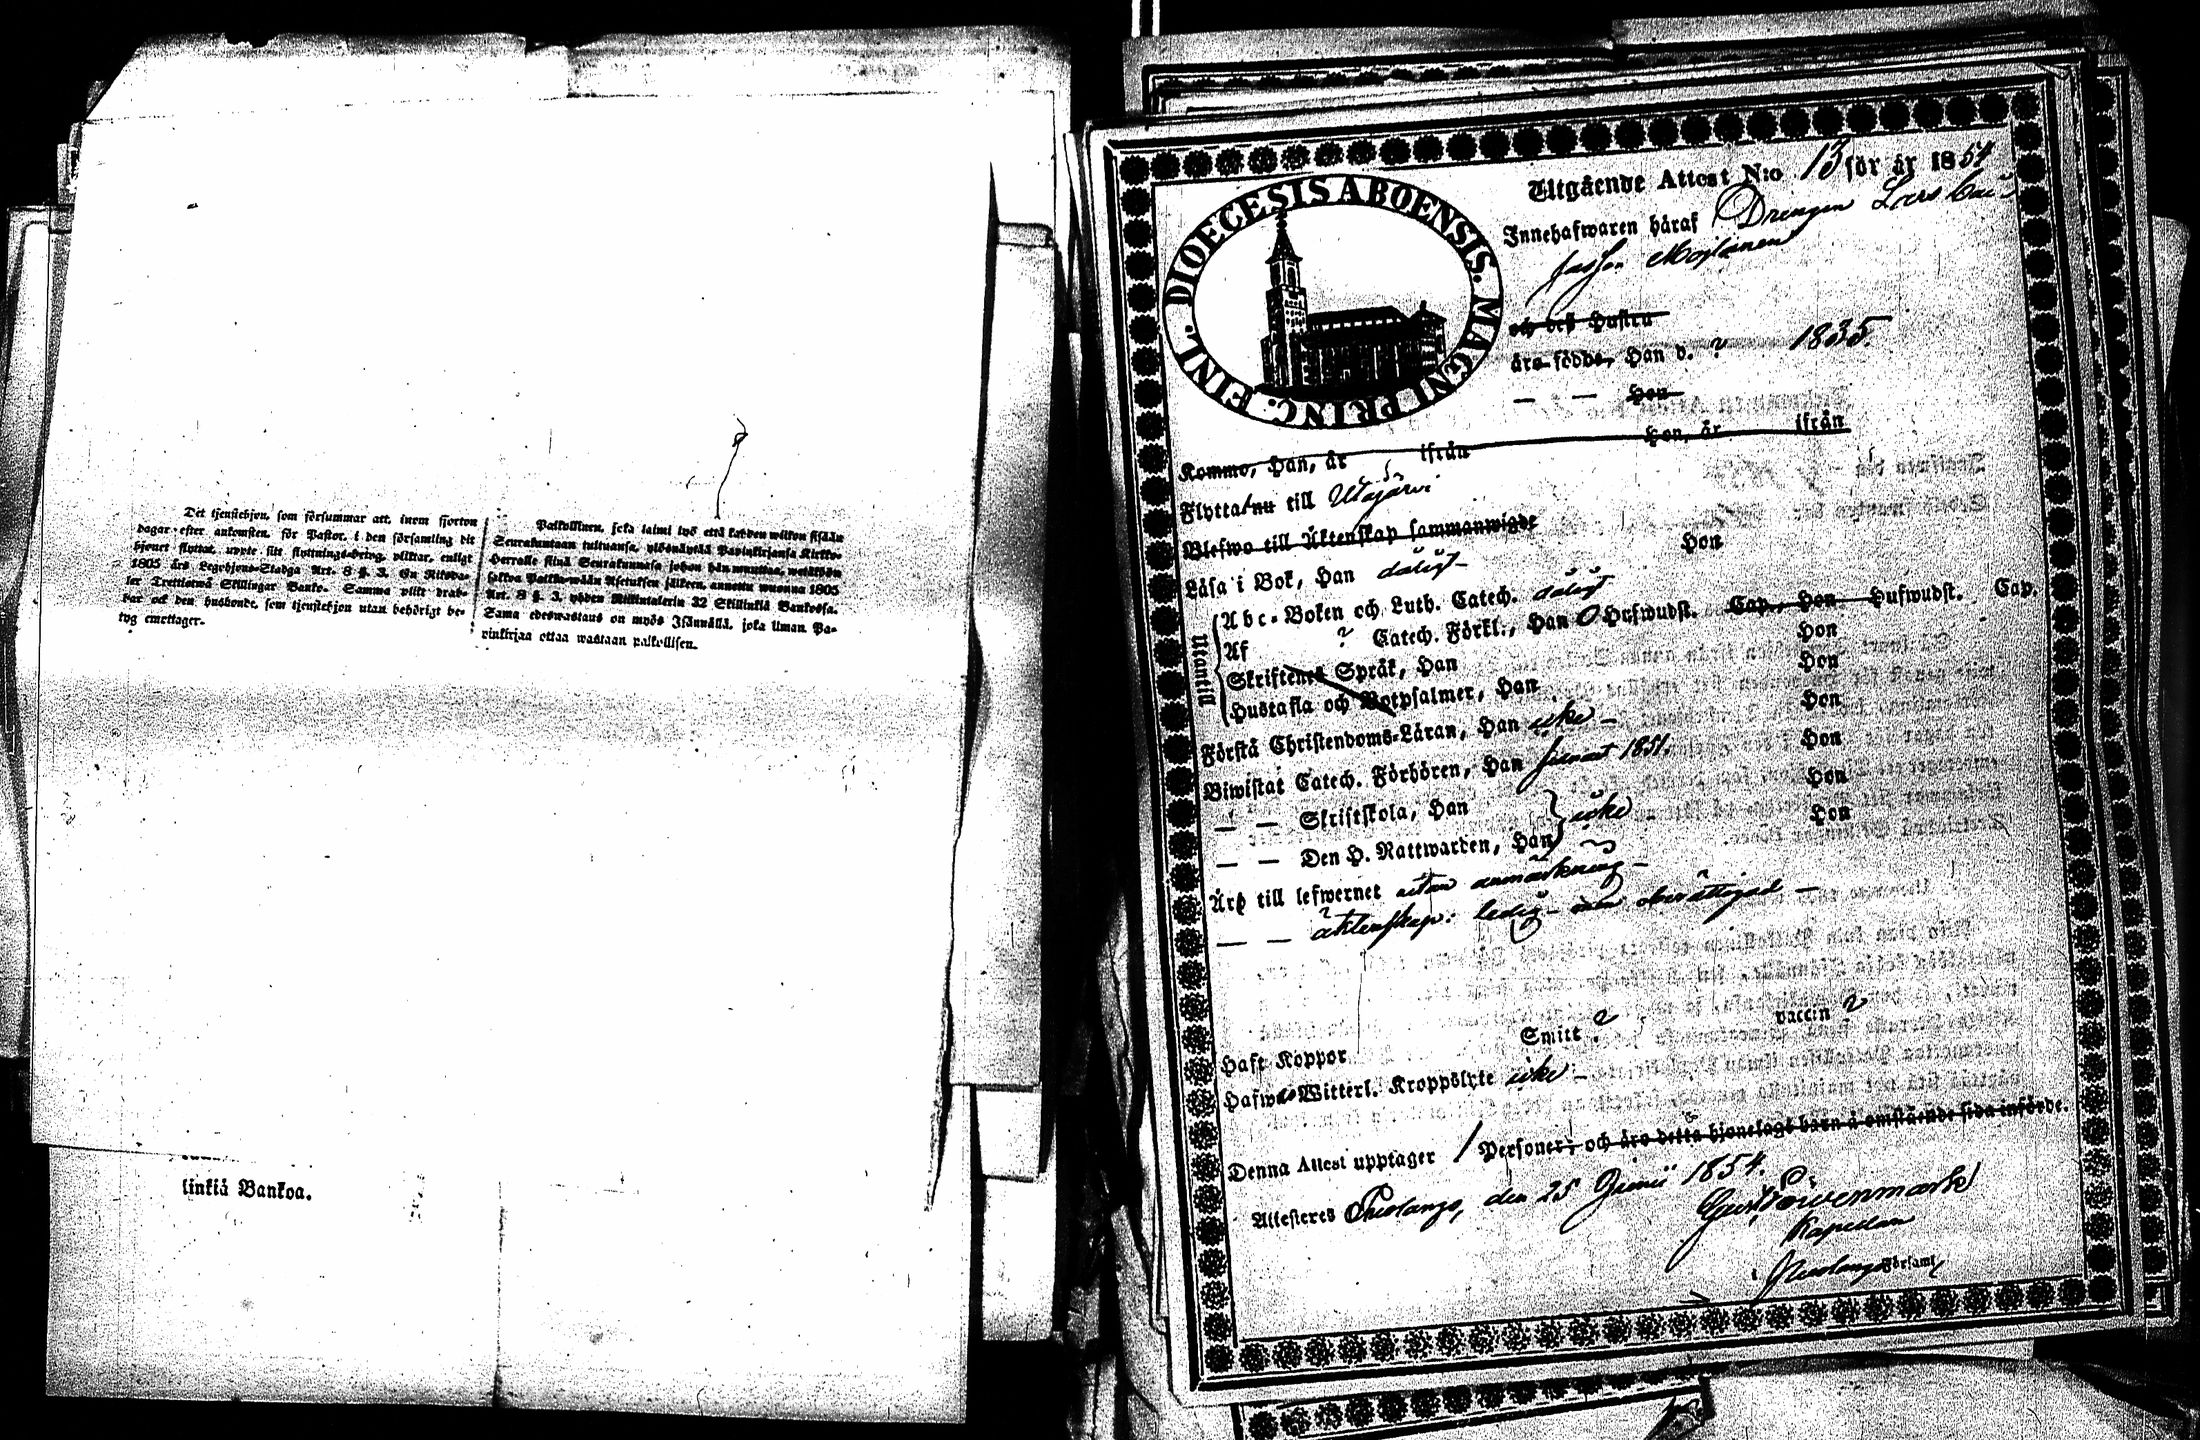 Det tjenstehjon, som försummar att, inom fjorton
dagar efter ankomsten, för Pastor, i den församling dit
hjonet flyttat, uppte sitt flyttnings-betyg, pliktar, enligt
1805 års Legohjons-Stadga Art. 8 §. 3. En Riksda-
ler Trettiotwå Skillingar Banko. Samma plikt drab-
bar ock den husbonde, som tjenstehjon utan behörigt be-
tyg emottager.
Palkollinen, joka laimi lyö että kahden wiikon sisään
Seurakuntaan tultuansa, ylösnäyttää Papinkirjansa Kirkko-
Herralle siinä Seurakunnassa johon hän muuttaa, wetäköön
sakkoa Palkka-wään Asetuksen jälkeen, annettu wuonna 1805
Art. 8 §. 3. yhden Riikintalerin 32 Skillinkiä Bankossa.
Sama edeswastaus on myös Isännällä, joka ilman Pa-
pinkirjaa ottaa wastaan palkollisen.
linkiä Bankoa.
DIOECESIS ABOENSIS. MAGNI PRINC. FINL.
Utgående Attest N:o 13 för år 1854
Innehafwaren häraf Drengen Lars
och dess Hustru
äro födde, Han d. ? 1835.
— — Hon
Kommo, Han, år ifrån Hon, år ifrån
Flytta nu till Utajärvi
Blefwo till Äktenskap sammanwigde
Läsa i Bok, Han dåligt Hon
Utantill
Abc-Boken och Luth. Catech. dåligt
Af ? Catech. Förkl., Han 0 Hufwudst. Cap., Hon Hufwudst. Cap.
Skriftenes Språk, Han Hon
Hustafla och Botpsalmer, Han Hon
Förstå Christendoms-Läran, Han icke — Hon
Biwistat Catech. Förhören, Han 1851. Hon
— — Skriftskola, Han icke Hon
— — Den H. Nattwarden, Han Hon
Äro till lefwernet utan anmärkning —
— — äktenskap: ledig — men oberättigad —
Haft Koppor Smitt ? vaccin ?
Hafwa Witterl. Kroppslyte icke —
Denna Attest upptager 1 Personer; och äro detta hjonelags barn å omstående sida införde.
Attesteras Pudasjärvi, den 25 Junii 1854.
Kapellan
i Församl.